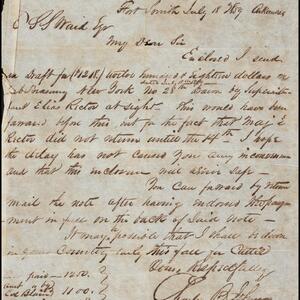 Fort Smith July 18th 1859 Arkansas
S S Ward Esqr
My Dear Sir
Enclosed I send
a Draft for ($218) two hundred & Eighteen dollars on
Sub Treasury New York No 28 Drawn by Superinten
dant Elias Rector at Sight. This would have been
forward ere this but for the fact that Maj E
Rector did not return until the 14th. I hope
the delay has not caused you any inconvenience
and that this inclosure will arive safe
You can forward by return
mail the note after having endorsed the pay
ment in full on the back of said note.
It may be possible that I shall be down
in your Country early this fall in
Yours Respectfully
paid 1250
1100